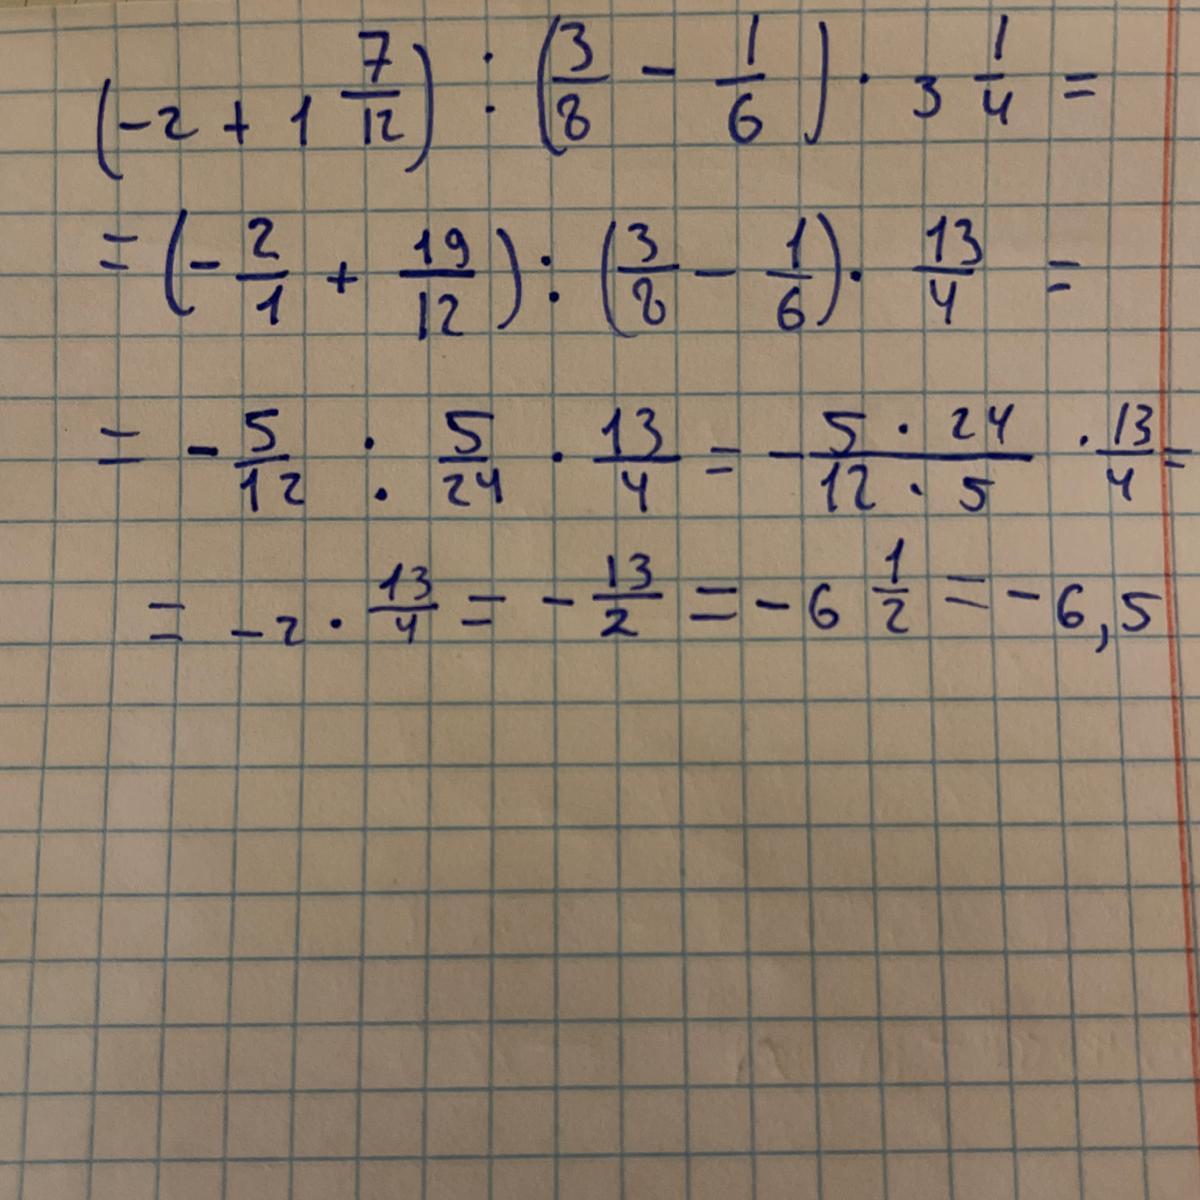 (-2 + 1 7/12) : (3/8 - 1/6) · 3 1/4 =
= (- 2/1 + 19/12) : (3/8 - 1/6) · 13/4 =
= - 5/12 : 5/24 · 13/4 = - 5 · 24/12 · 5 · 13/4 =
= -2 · 13/4 = - 13/2 = - 6 1/2 = - 6,5